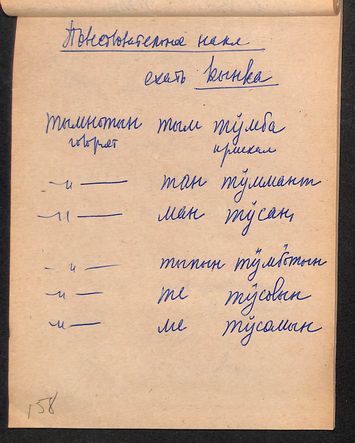 Повествовательное накл
ехать Кынка
тымнотын тым тӱмба
говорят приехал
–"– тан тӱммант
–"– ман тӱсан,
–"– тыпын тӱмботын
–"– те тӱсовын
–"– ме тӱсомын
158